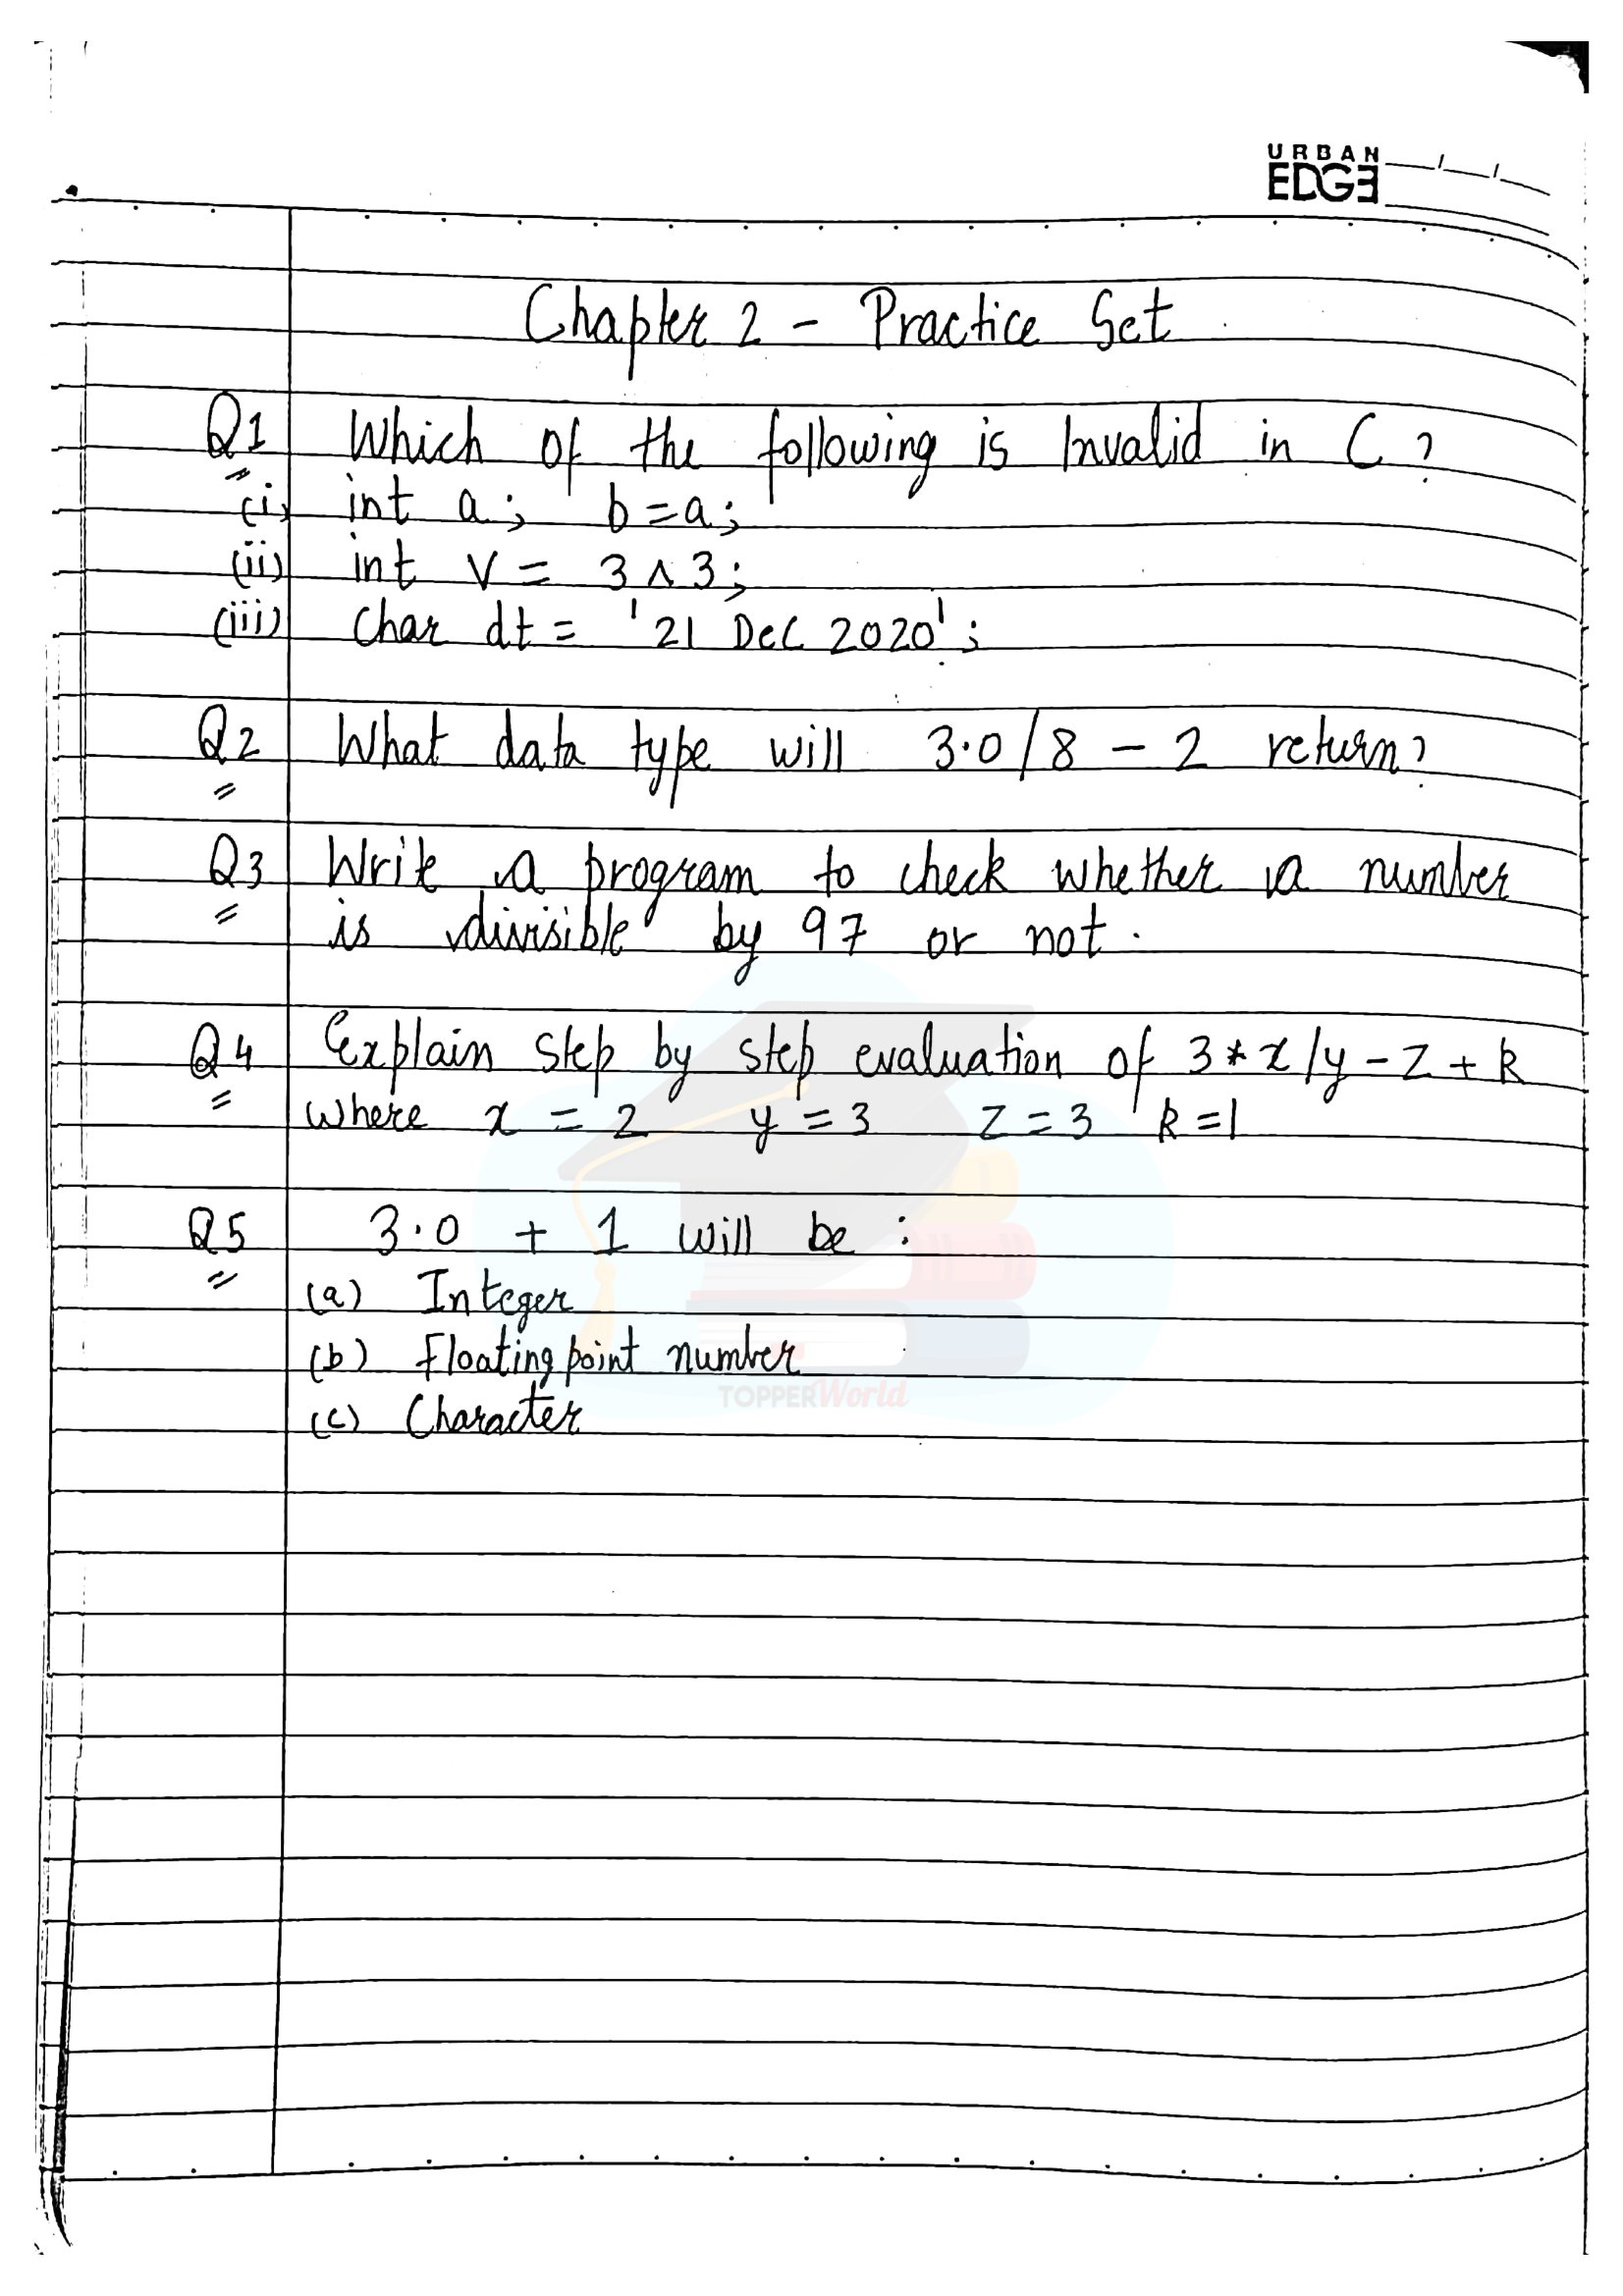 URBAN
EDGE
Chapter 2 - Practice Set
Q1 Which of the following is Invalid in C?
(i) int a; b=a;
(ii) int v = 3 ^ 3;
(iii) char dt = '21 Dec 2020';
Q2 What data type will 3.0/8 - 2 return?
Q3 Write a program to check whether a number
is divisible by 97 or not.
Q4 Explain step by step evaluation of 3*x/y-z+k
where x = 2 y = 3 z = 3 k = 1
Q5 3.0 + 1 will be :
(a) Integer
(b) Floating point number
(c) Character
TOPPERWorld